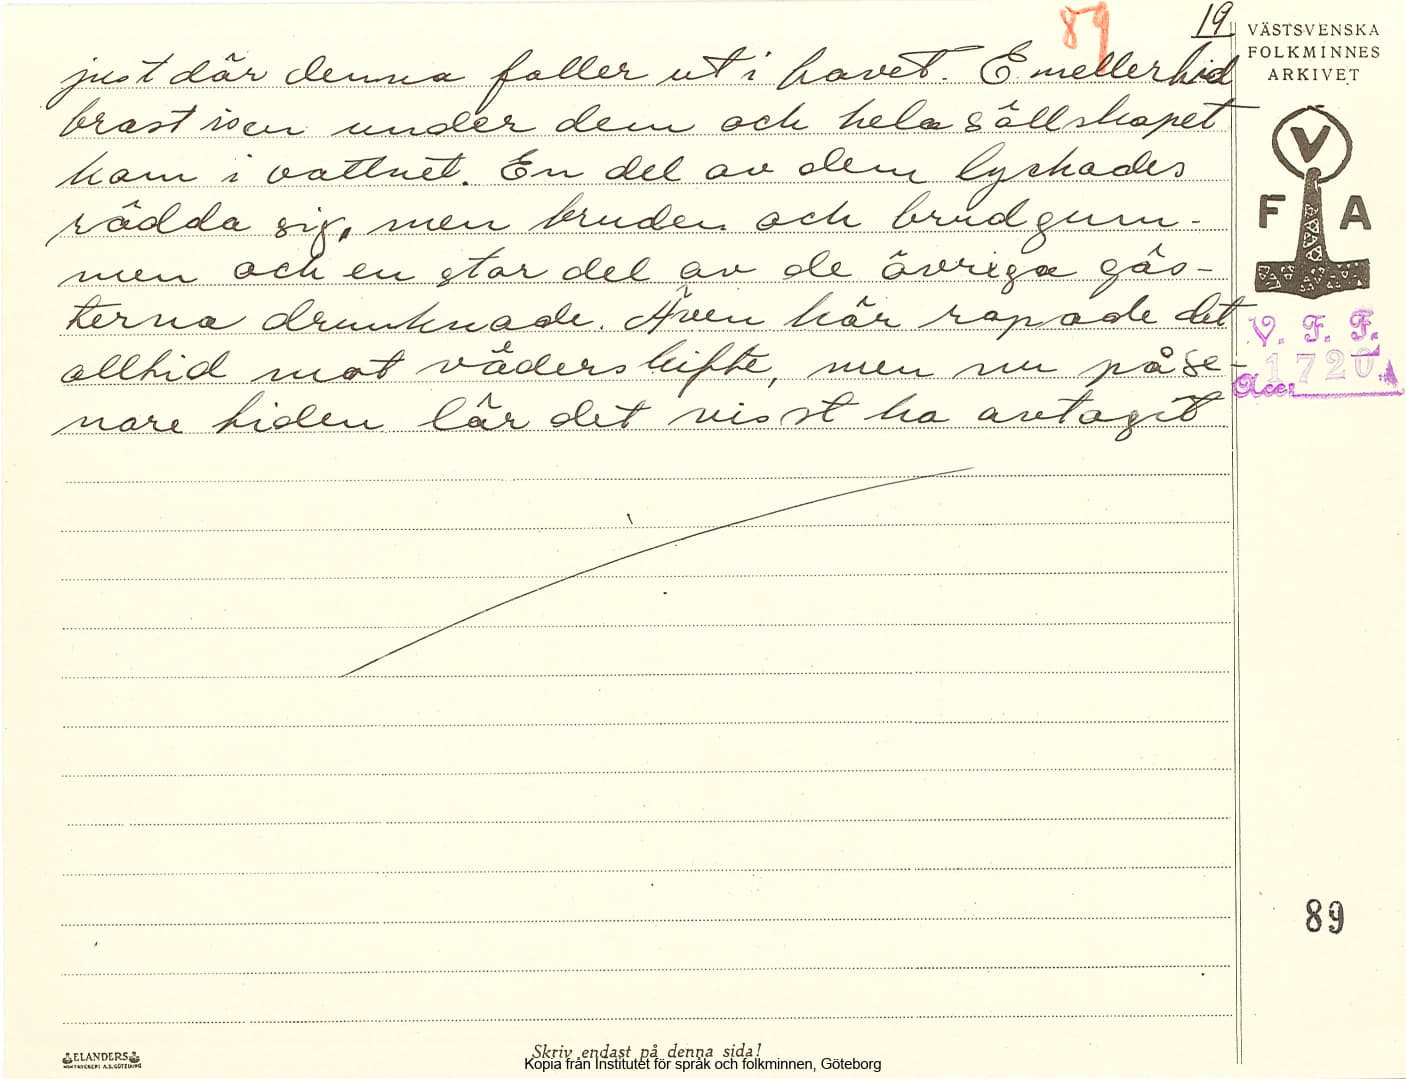 89
19
VÄSTSVENSKA
FOLKMINNES
ARKIVET
just där denna faller ut i havet. Emellertid
brast isen under dem och hela sällskapet
kom i vattnet. En del av dem lyckades
rädda sig, men bruden och brudgum-
men och en stor del av de övriga gäs-
terna drunknade. Även här ropade det
alltid mot väderskifte, men nu på se-
nare tiden lär det visst ha avtagit
V
F A
V. F. F.
1720
Acc.
89
ELANDERS
BOKTRYCKERI A.B. GÖTEBORG
Skriv endast på denna sida!
Kopia från Institutet för språk och folkminnen, Göteborg